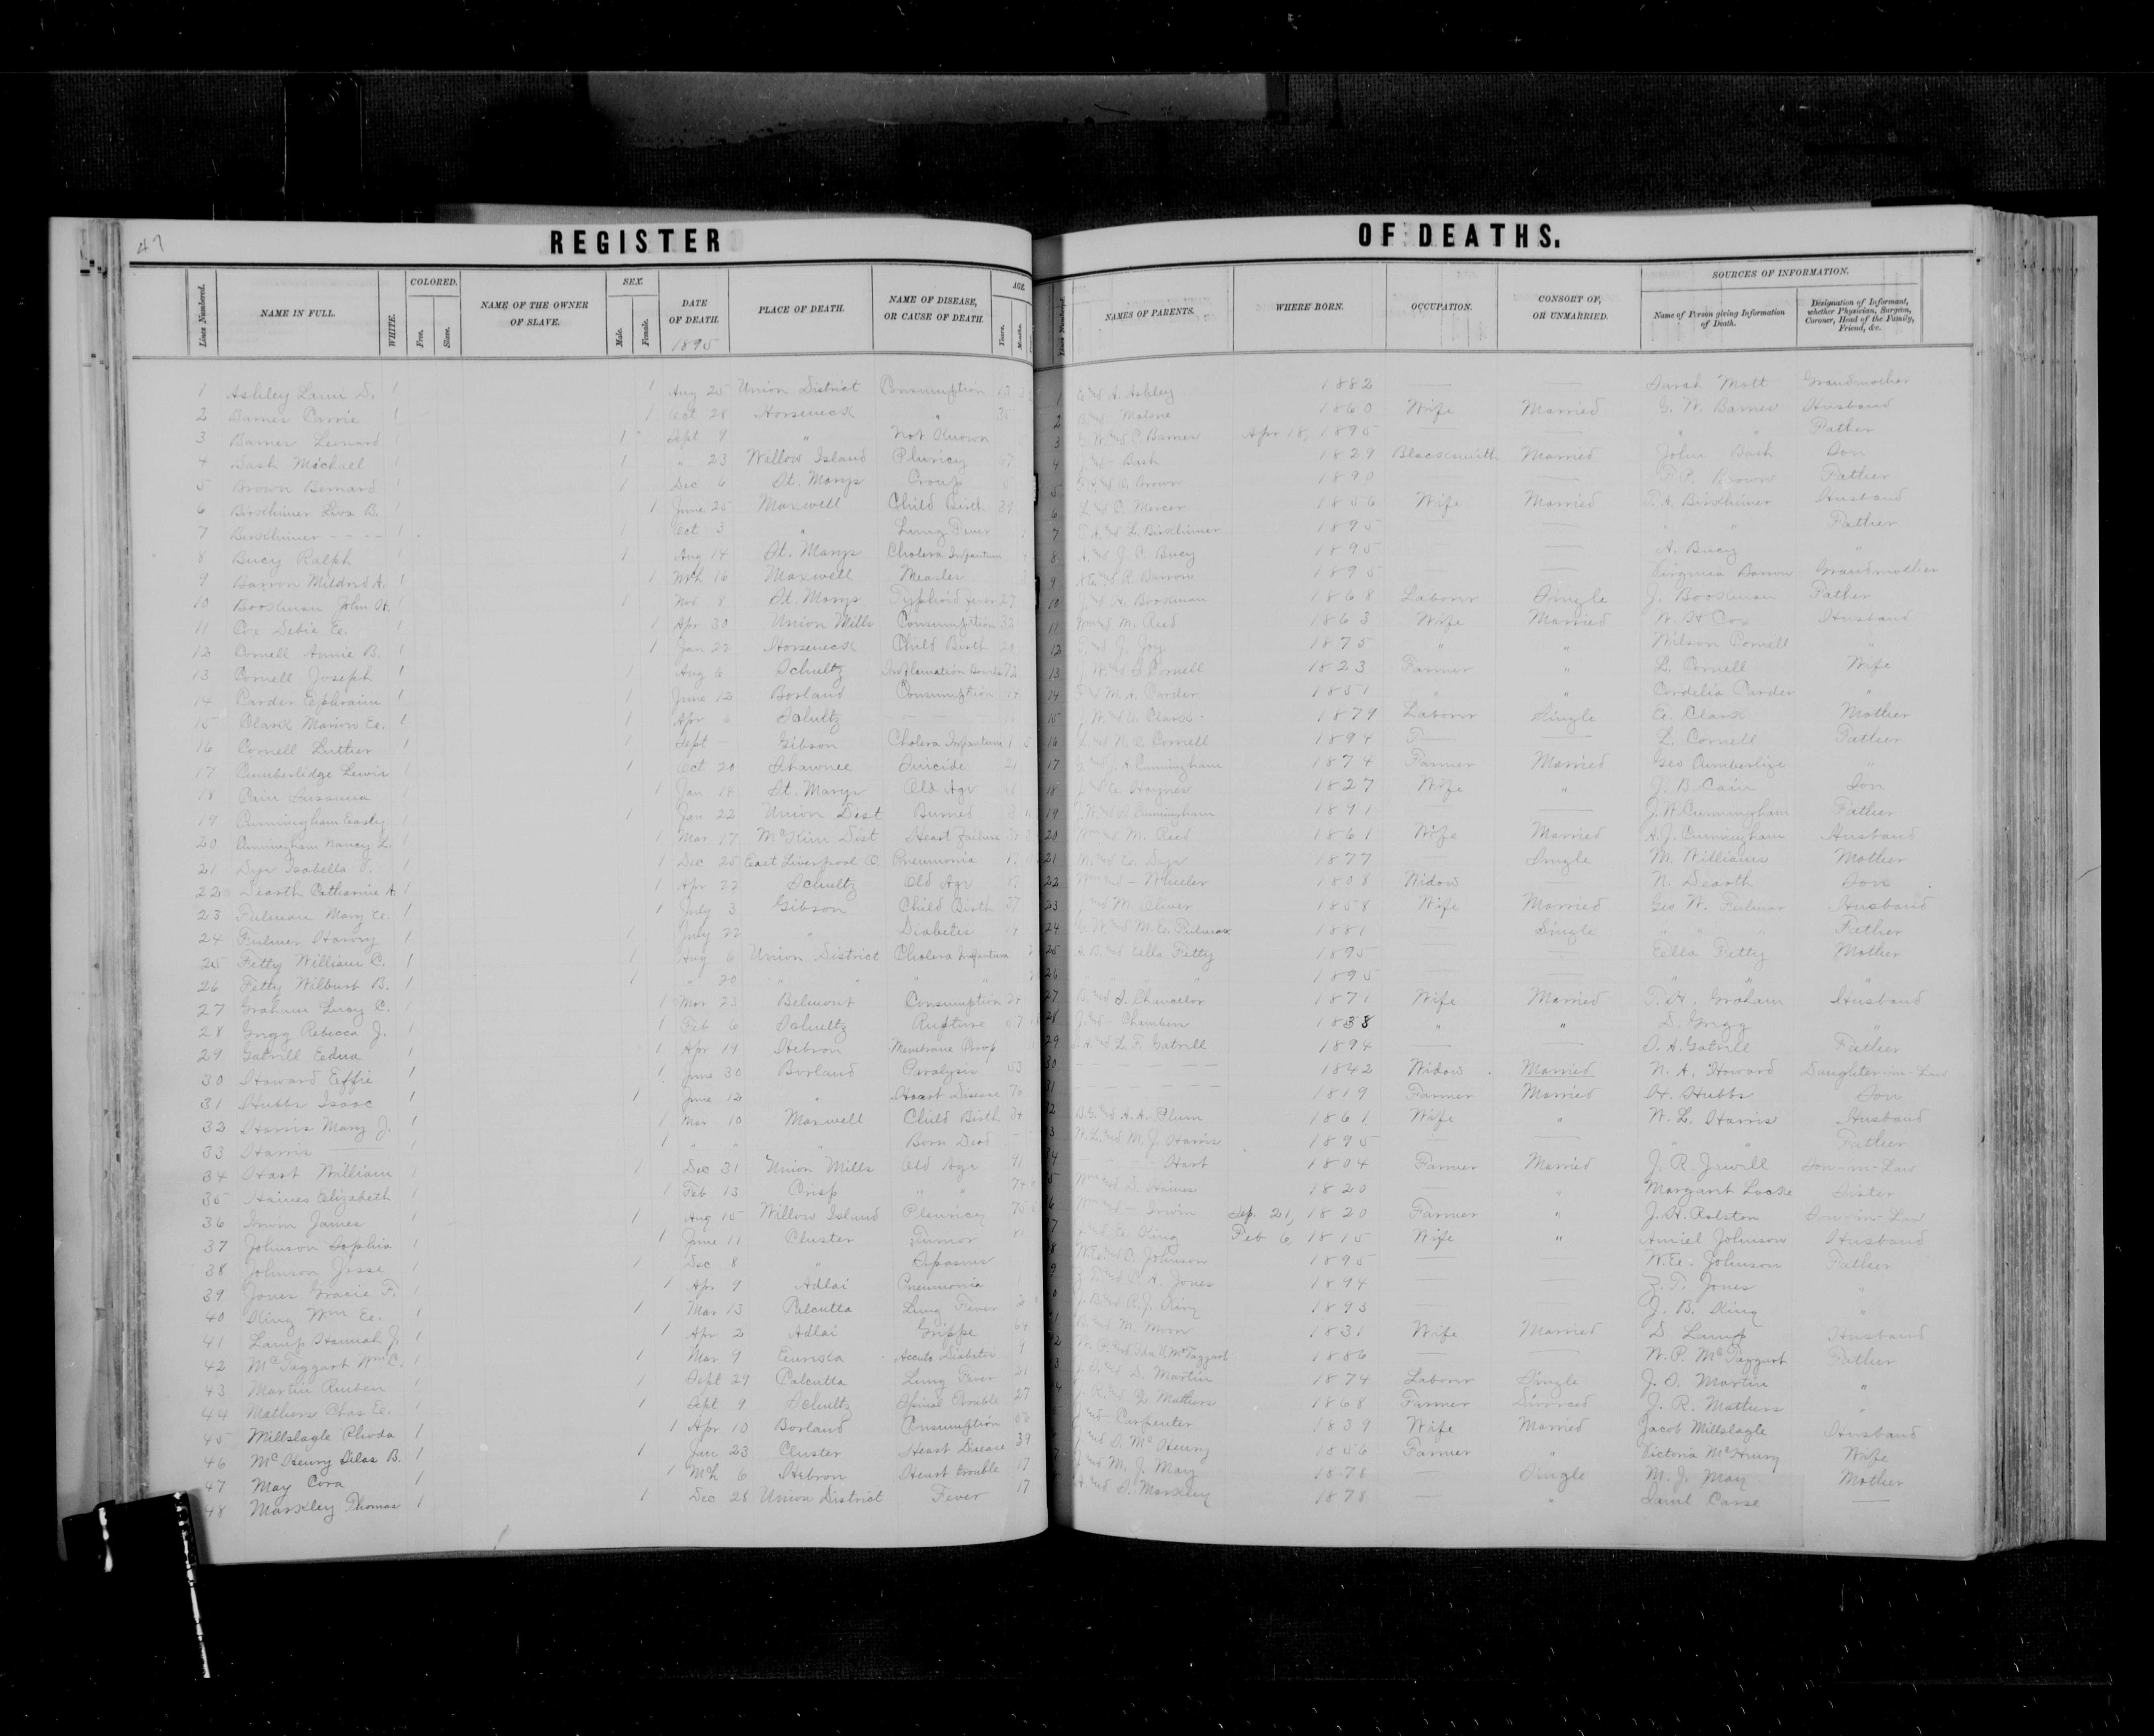 47
REGISTER OF DEATHS.
Lines Numbered. NAME IN FULL. WHITE. COLORED. Free. Slave. NAME OF THE OWNER OF SLAVE. SEX. Male. Female. DATE OF DEATH. 1895 PLACE OF DEATH. NAME OF DISEASE, OR CAUSE OF DEATH. AGE. Years. Months. Lines Numbered. NAMES OF PARENTS. WHERE BORN. OCCUPATION. CONSORT OF, OR UNMARRIED. SOURCES OF INFORMATION. Name of Person giving Information of Death. Designation of Informant, whether Physician, Surgeon, Coroner, Head of the Family, Friend, &c.
1 Ashley D. 1 1 Aug 25 Union District Consumption 13 1 A. Ashley 1882 — — Sarah Mott Grandmother
2 Barnes Carrie 1 1 Oct 28 Horseneck " 35 2 Malone 1860 Wife Married G. W. Barnes Husband
3 Barnes Leonard 1 1 Sept 9 " Not Known 3 G. W. and C. Barnes Apr 18, 1895 — — " " Father
4 Bash Michael 1 1 " 23 Willow Island Pluricy 67 4 Bash 1829 Blacksmith Married John Bash Son
5 Brown Bernard 1 1 Dec 6 St. Marys Croup 5 Brown 1890 — — Brown Father
6 Birkhimer B. 1 1 June 25 Maxwell Child Birth 39 6 Mercer 1856 Wife Married T. A. Birkhimer Husband
7 Birkhimer - - - - 1 1 Oct 3 " Lung Fever 7 T. A. and L. Birkhimer 1895 — — " " Father
8 Bucy Ralph 1 1 Aug 14 St. Marys Cholera Infantum 8 A. and J. C. Bucy 1895 — — A. Bucy "
9 Barron Mildred A. 1 1 Mch 16 Maxwell Measles 9 R. Barron 1895 — — Virginia Barron Grandmother
10 Bookman John H. 1 1 Nov 8 St. Marys Typhoid Fever 27 10 Bookman 1868 Laborer Single J. Bookman Father
11 Cox Debie E. 1 1 Apr 30 Union Mills Consumption 32 11 Wm and M. Reed 1863 Wife Married W. H. Cox Husband
12 Cornell Annie B. 1 1 Jan 22 Horseneck Child Birth 20 12 J. Joy 1875 " " Wilson Cornell "
13 Cornell Joseph 1 1 Aug 6 Schultz Inflamation 72 13 Cornell 1823 Farmer " L. Cornell Wife
14 Carder Ephraim 1 1 June 12 Borland Consumption 14 M. A. Carder 1851 " " Cordelia Carder "
15 Clark Marion E. 1 1 Apr 6 Schultz — — 15 Clark 1879 Laborer Single E. Clark Mother
16 Cornell Luther 1 1 Sept — Gibson Cholera Infantum 1 5 16 L. and N. C. Cornell 1894 — — L. Cornell Father
17 Cumberlidge Lewis 1 1 Oct 20 Shawnee Suicide 21 17 J. A. Cunningham 1874 Farmer Married Geo Cumberlige "
18 Cain Susanna 1 1 Jan 18 St. Marys Old Age 18 Haynes 1827 Wife " J. B. Cain Son
19 Cunningham Easly 1 1 Jan 22 Union Dist Burned 3 11 19 Cunningham 1891 — — J. W. Cunningham Father
20 Cunningham Nancy L. 1 1 Mar 17 McKim Dist Heart Failure 20 Wm and M. Reed 1861 Wife Married A. J. Cunningham Husband
21 Dye Isabella 1 1 Dec 25 East Liverpool O. Pneumonia 21 Dye 1877 — Single M. Williams Mother
22 Dearth Catharine A. 1 1 Apr 22 Schultz Old Age 87 22 — Wheeler 1808 Widow — N. Dearth Son
23 Fulmer Mary E. 1 1 July 3 Gibson Child Birth 37 23 M. Oliver 1858 Wife Married Geo W. Fulmer Husband
24 Fulmer Harry 1 1 July 22 " Diabetes 14 24 G. W. and M. E. Fulmer 1881 — Single " " " Father
25 Fetty William C. 1 1 Aug 6 Union District Cholera Infantum 25 A. B. and Ella Fetty 1895 — — Ella Fetty Mother
26 Fetty Wilburt B. 1 1 " 20 " " " " 26 " " " 1895 — — " " "
27 Graham Lucy C. 1 1 Mar 23 Belmont Consumption 24 27 Chancelor 1871 Wife Married T. H. Graham Husband
28 Grigg Rebecca J. 1 1 Feb 6 Schultz Rupture 57 28 J. and — Chambers 1838 " " S. Grigg "
29 Gatrell Edna 1 1 Apr 19 Hebron Membrane Croup 29 L. F. Gatrell 1894 — — Gatrell Father
30 Howard Effie 1 1 June 30 Borland Paralysis 53 30 — — — — — 1842 Widow Married N. A. Howard Daughter-in-Law
31 Hubbs Isaac 1 1 June 12 " Heart Disease 76 31 — — — — — 1819 Farmer Married H. Hubbs Son
32 Harris Mary J. 1 1 Mar 10 Maxwell Child Birth 34 32 B. G. and A. A. Clum 1861 Wife " W. L. Harris Husband
33 Harris — 1 1 " " " Born Dead — 33 W. L. and M. J. Harris 1895 — — " " Father
34 Hart William 1 1 Dec 31 Union Mills Old Age 91 34 — — Hart 1804 Farmer Married J. R. Jewell Son-in-Law
35 Haines Elizabeth 1 1 Feb 13 Crisp " " 74 35 Haines 1820 — " Margaret Locke Sister
36 Irwin James 1 1 Aug 15 Willow Island Pleuricy 75 36 Wm and — Irwin Sep. 21, 1820 Farmer " J. H. Ralston Son-in-Law
37 Johnson Sophia 1 1 June 11 Cluster Tumor 37 E. King Feb 6, 1815 Wife " Amiel Johnson Husband
38 Johnson Jesse 1 1 Dec 8 " Spasms 38 Johnson 1895 — — W. E. Johnson Father
39 Jones Gracie F. 1 1 Apr 9 Adlai Pneumonia 39 Jones 1894 — — Z. T. Jones "
40 King Wm E. 1 1 Mar 13 Calcutta Lung Fever 2 J. B. and R. J. King 1893 — — J. B. King "
41 Lamp Hannah J. 1 1 Apr 2 Adlai Grippe 64 M. Moon 1831 Wife Married S Lamp Husband
42 McTaggart Wm C. 1 1 Mar 9 Eureka Accute Diabetes 9 W. P. and McTaggart 1886 — — W. P. McTaggart Father
43 Martin Ruben 1 1 Sept 29 Calcutta Lung Fever 21 S. Martin 1874 Laborer Single J. S. Martin "
44 Mathers Chas E. 1 1 Sept 9 Schultz Spinal Trouble 27 J. R. and Mathers 1868 Farmer Divorced J. R. Mathers "
45 Millslagle Rhoda 1 1 Apr 10 Borland Consumption 56 Carpenter 1839 Wife Married Jacob Millslagle Husband
46 McHenry Silas B. 1 1 Jan 23 Cluster Heart Disease 39 McHenry 1856 Farmer " Victoria McHenry Wife
47 May Cora 1 1 Mch 6 Hebron Heart trouble 17 M. J. May 1878 — Single M. J. May Mother
48 Markley Thomas 1 1 Dec 28 Union District Fever 17 Markley 1878 — " Saml Carse —